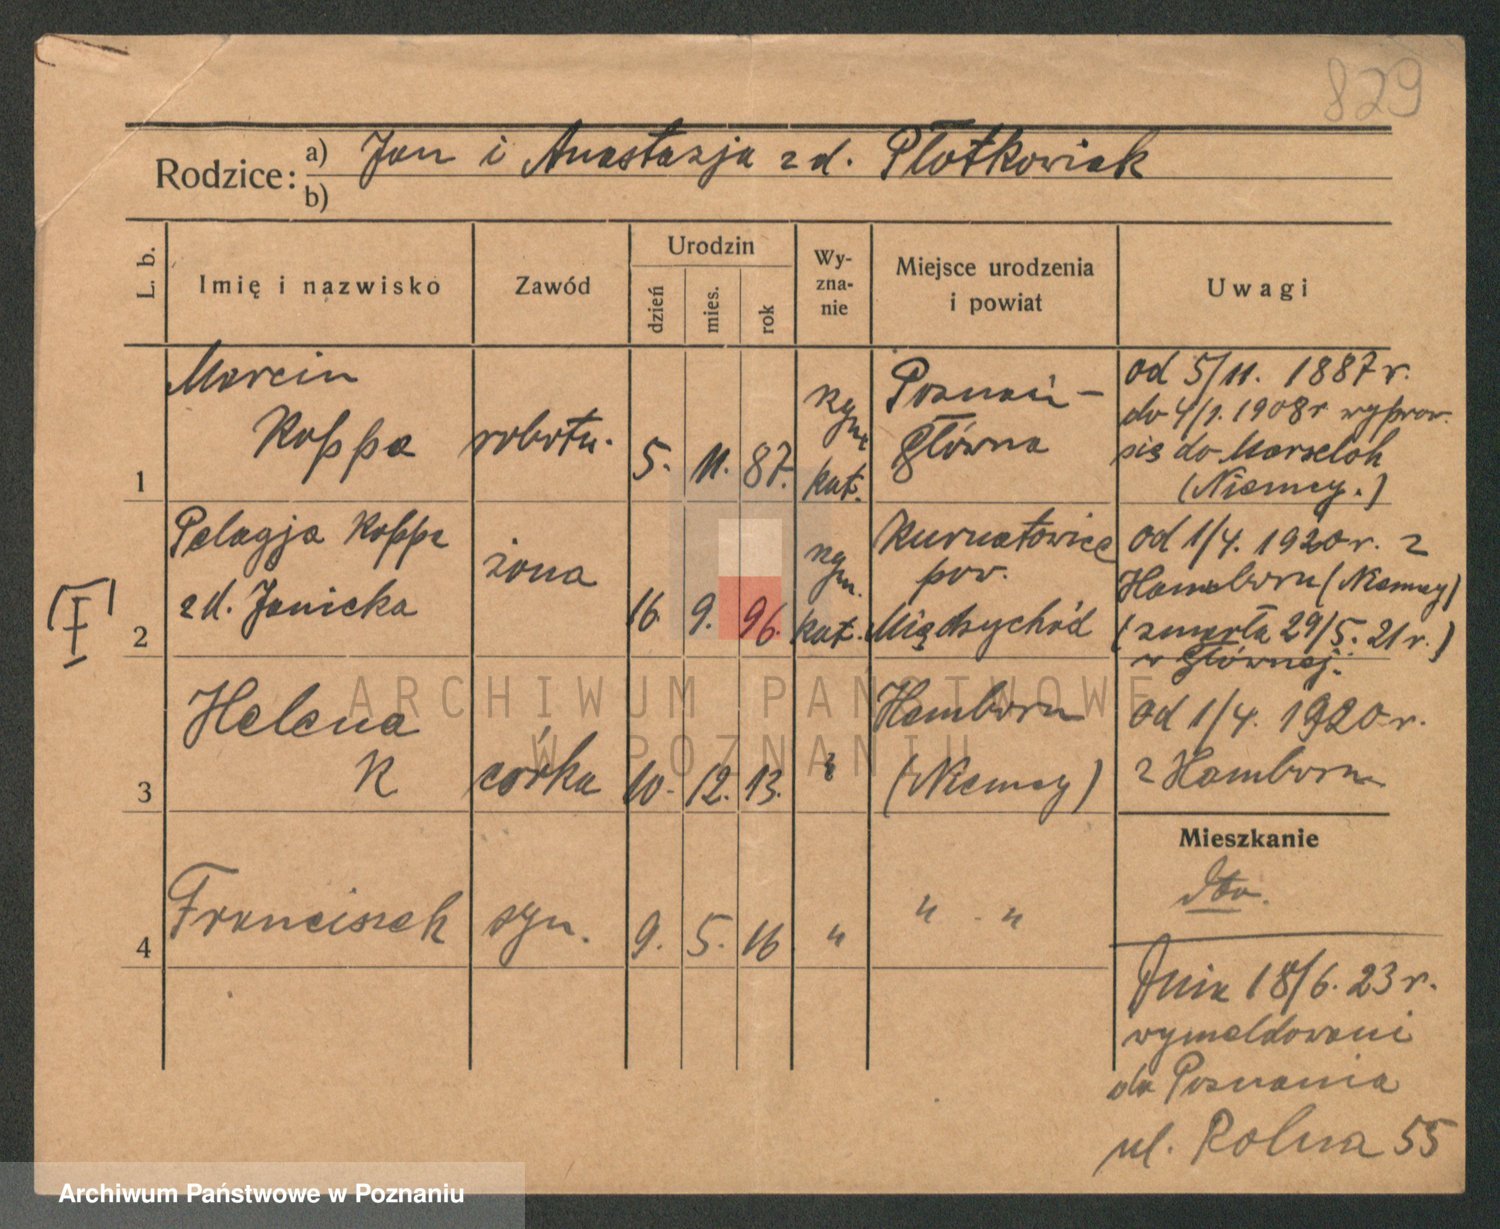 829
Rodzice: a) Jan i Anastazja z d. Płotkowiak
b)
L. b.
Imię i nazwisko
Zawód
Urodzin
dzień
mies.
rok
Wy-
zna-
nie
Miejsce urodzenia
i powiat
Uwagi
1
Marcin
Koppa
robotn.
5. 11. 87.
rzym
kat.
Poznań –
Główna
od 5/11. 1887 r.
do 4/1. 1908 r wyprow.
się do Marxeloh
(Niemcy.)
I
2
Pelagja Koppa
z d. Janicka
żona
16. 9. 96.
rzym.
kat.
Kurnatowice
pow.
Międzychód
od 1/4. 1920 r. z
Hamborn (Niemcy)
(zmarła 29/5. 21 r.)
w Głównej.
3
Helena
K
córka
10. 12. 13.
"
Hamborn
(Niemcy)
od 1/4. 1920 r.
z Hamborn
4
Franciszek
syn.
9. 5. 16
"
" - "
Mieszkanie
dto.
Dnia 18/6. 23 r.
wymeldowani
do Poznania
ul. Rolna 55
ARCHIWUM PAŃSTWOWE
W POZNANIU
Archiwum Państwowe w Poznaniu